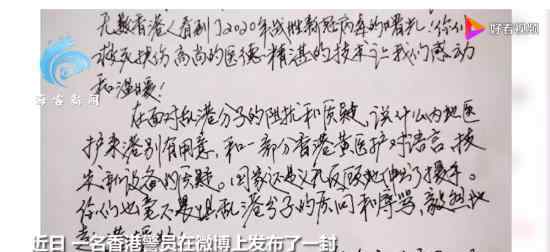 好看视频
无数香港人看到了2020年战胜新冠病毒的曙光!你们
救死扶伤高尚的医德 精湛的技术 让我们感动
和温暖!
在面对乱港分子的阻扰和质疑,说什么内地医
护来港别有用意,和一部分香港黄医护对语言、技
术和设备的质疑。国家还是义无反顾地伸出了援手。
你们也毫不畏惧乱港分子的质问和辱骂,毅然地
近日 一名香港警员在微博上发布了一封